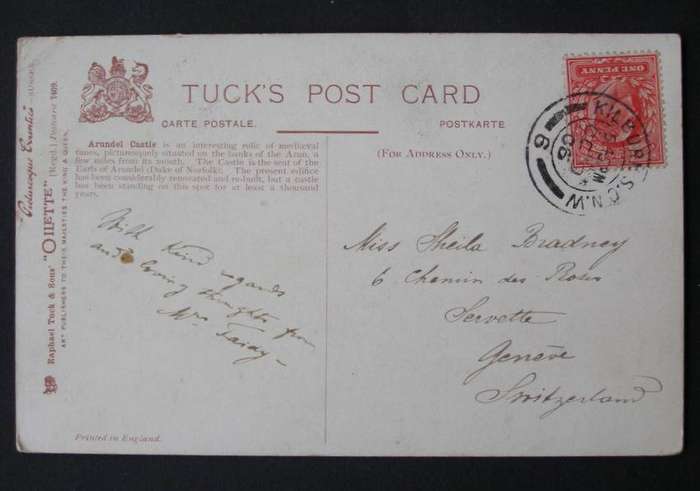 TUCK'S POST CARD
CARTE POSTALE. POSTKARTE
(FOR ADDRESS ONLY.)
Arundel Castle is an interesting relic of mediæval
times, picturesquely situated on the banks of the Arun, a
few miles from its mouth. The Castle is the seat of the
Earls of Arundel (Duke of Norfolk). The present edifice
has been considerably renovated and re-built, but a castle
has been standing on this spot for at least a thousand
years.
With Kind regards
and loving thoughts from
Mrs
Miss Sheila Bradney
6 Chemin des Roses
Servette
Genève
Switzerland
Printed in England.
Raphael Tuck & Sons' "OILETTE" [Regd.] Postcard 1409.
ART PUBLISHERS TO THEIR MAJESTIES THE KING & QUEEN.
"Picturesque Counties" SUSSEX
ONE PENNY
KILBURN S.O. N.W
06
6